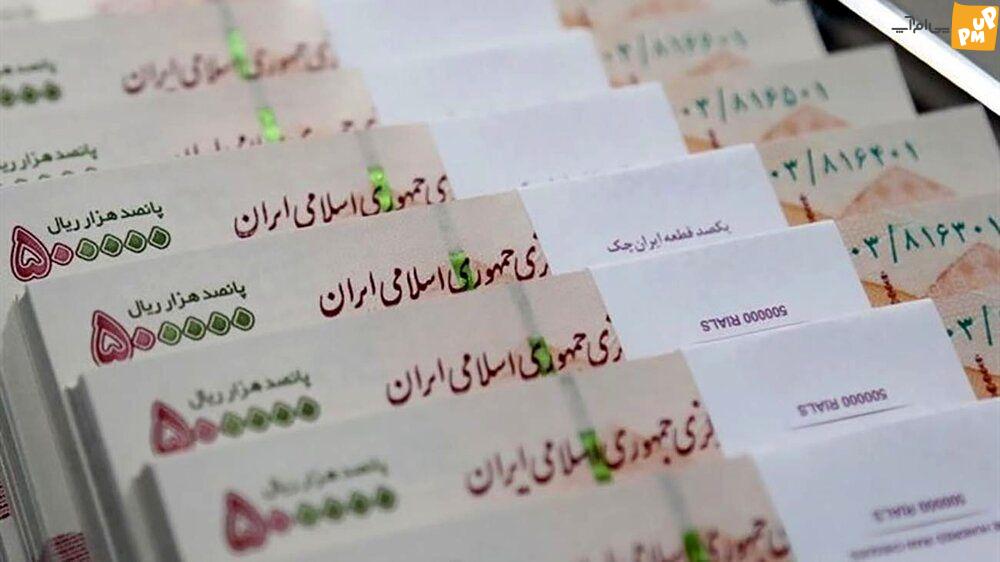 یی‌ام‌آپی
UP
PM
جمهوری اسلامی ایران
۰۳/۸۱۶۶۰۱
پانصد هزار ریال
۰۳/۸۱۶۵۰۱
پانصد هزار ریال
جمهوری اسلامی ایران
۰۳/۸۱۶۴۰۱
پانصد هزار ریال
۵۰۰۰۰۰
یکصد قطعه ایران چک
جمهوری اسلامی ایران
۰۳/۸۱۶۳۰۱
پانصد هزار ریال
۵۰۰۰۰۰
500000 RIALS
جمهوری اسلامی ایران
۰۳/
پانصد هزار ریال
۵۰۰۰۰۰
500000 RIALS
جمهوری اسلامی ایران
پانصد هزار ریال
۵۰۰۰۰۰
500000 RIALS
جمهوری